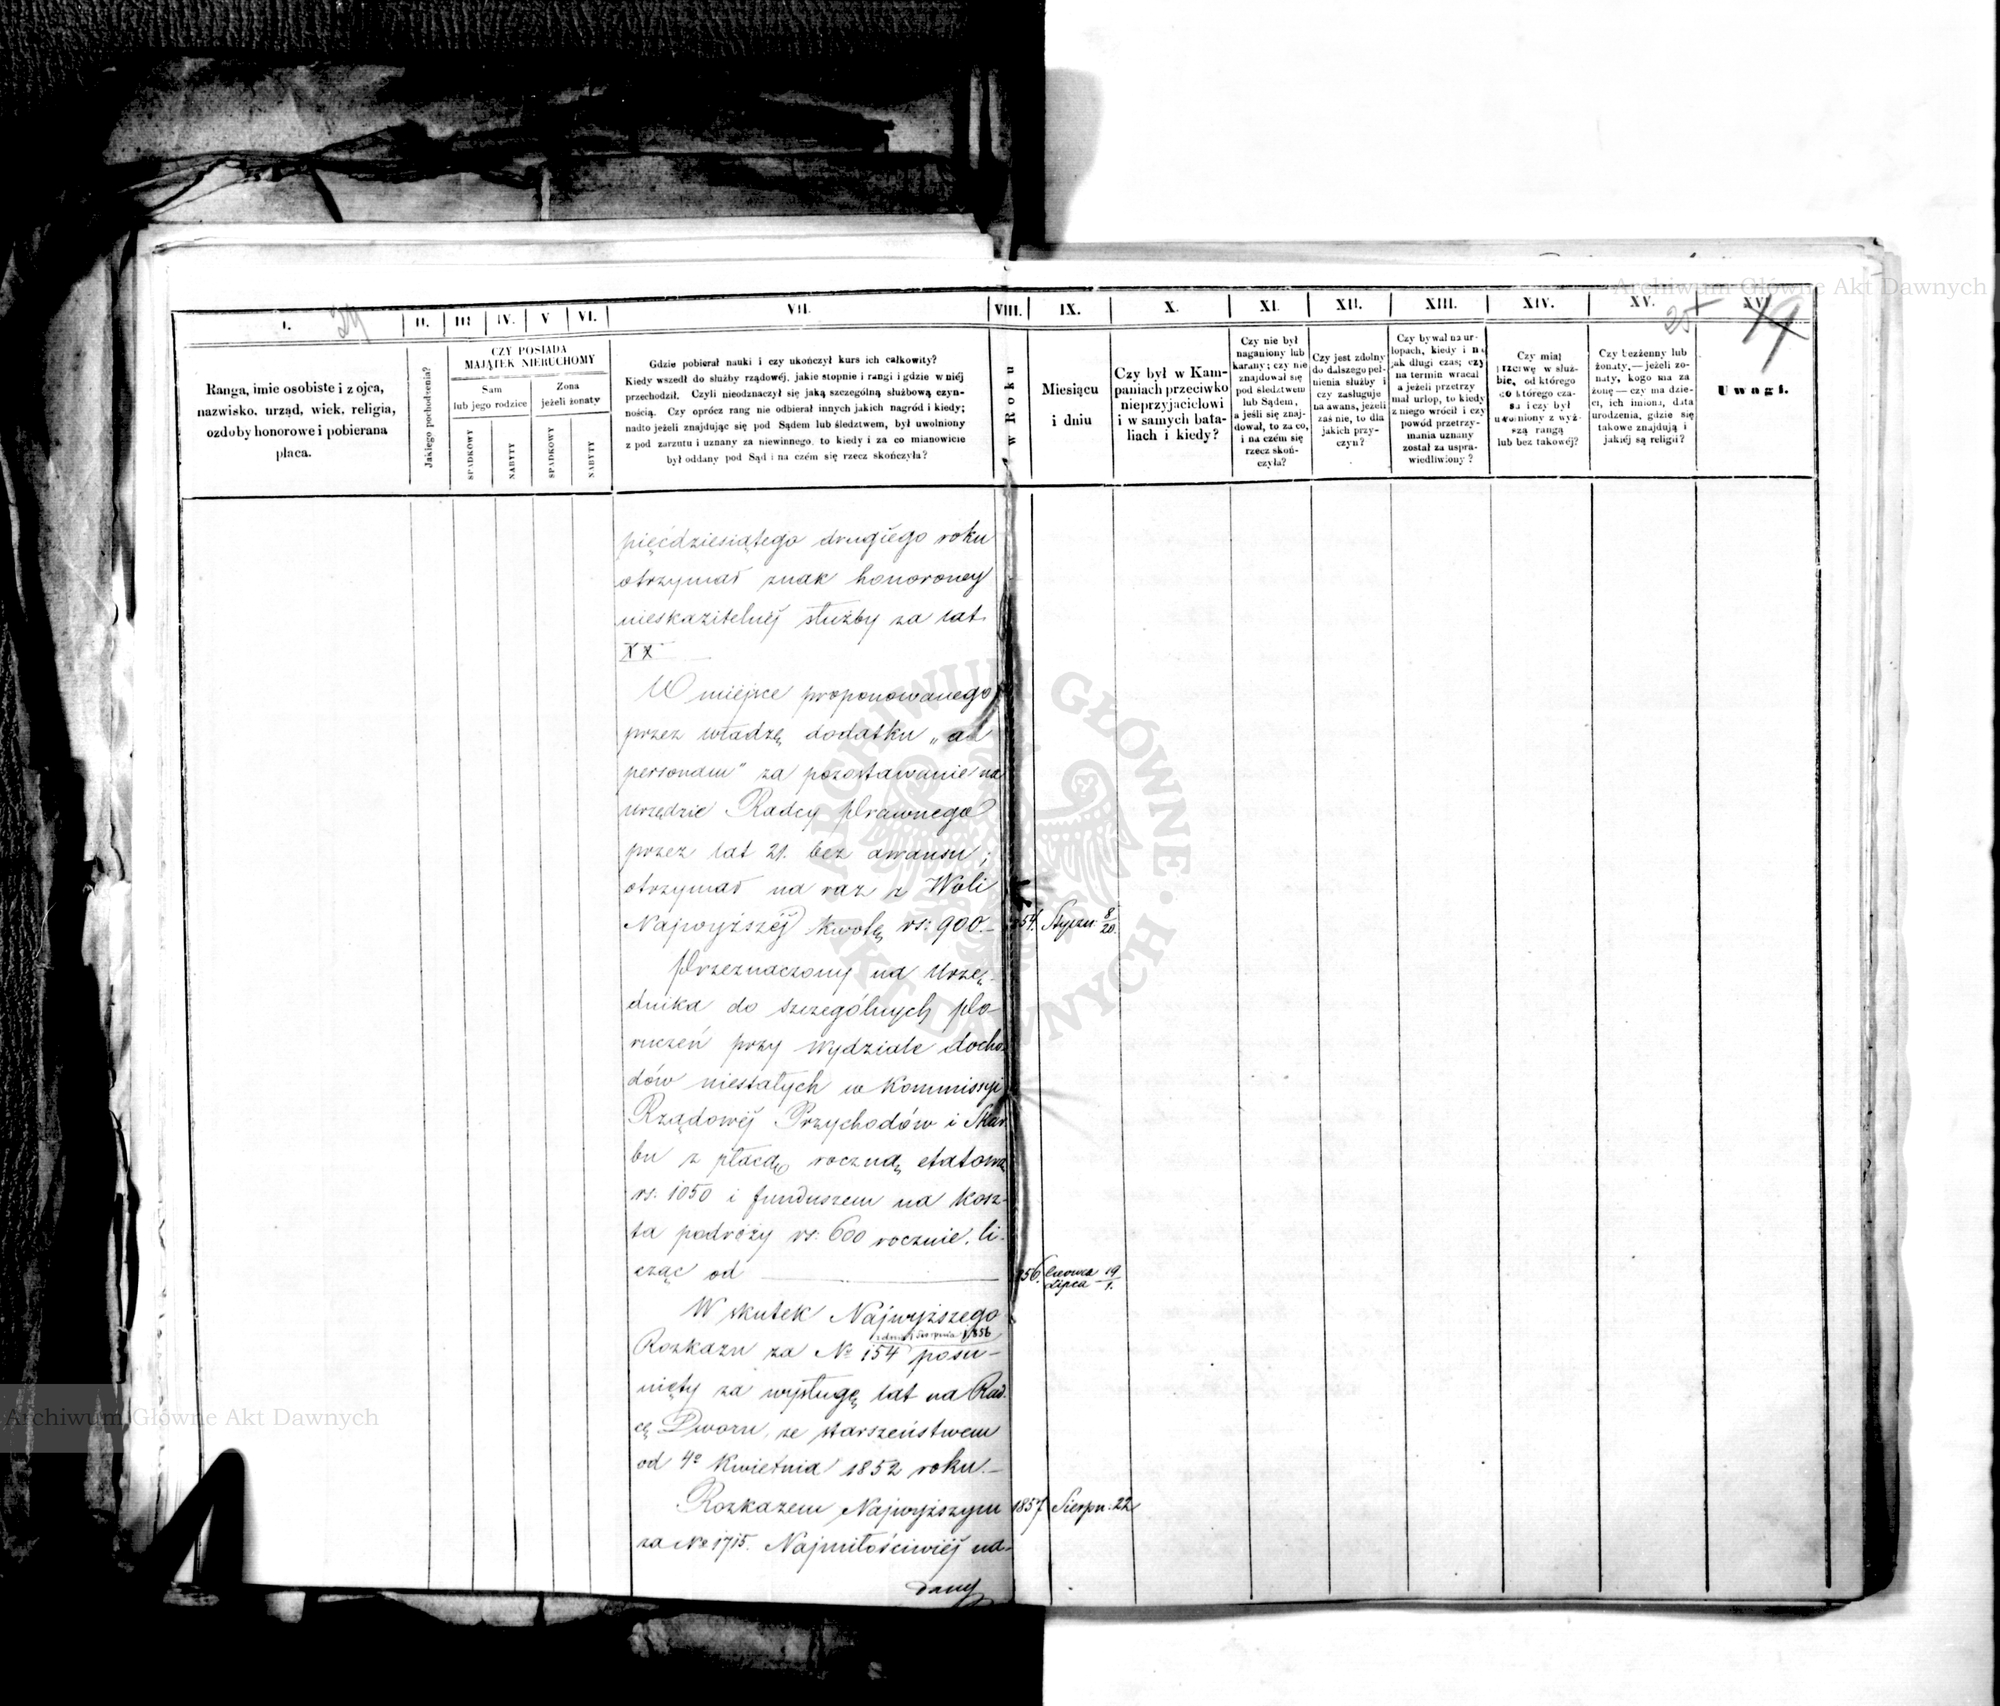 Archiwum Główne Akt Dawnych
I.
24
II.
III
IV.
V
VI.
VII.
VIII.
IX.
X.
XI.
XII.
XIII.
XIV.
XV.
25
XV
19
Ranga, imie osobiste i z ojca,
nazwisko. urząd, wiek. religia,
ozdoby honorowe i pobierana
płaca.
Jakiego pochodzenia?
CZY POSIADA
MAJĄTEK NIERUCHOMY
Sam
lub jego rodzice
Zona
jeżeli żonaty
SPADKOWY
NABYTY
SPADKOWY
NABYTY
Gdzie pobierał nauki i czy ukończył kurs ich całkowity?
Kiedy wszedł do służby rządowéj, jakie stopnie i rangi i gdzie w niéj
przechodził. Czyli nieodznaczył się jaką szczególną służbową czyn-
nością. Czy oprócz rang nie odbierał innych jakich nagród i kiedy;
nadto jeżeli znajdując się pod Sądem lub śledztwem, był uwolniony
z pod zarzutu i uznany za niewinnego, to kiedy i za co mianowicie
był oddany pod Sąd i na czém się rzecz skończyła?
w Roku
Miesiącu
i dniu
Czy był w Kam-
paniach przeciwko
nieprzyjacielowi
i w samych bata-
liach i kiedy?
Czy nie był
naganiony lub
karany; czy nie
znajdował się
pod śledztwem
lub Sądem,
a jeśli się znaj-
dował, to za co,
i na czém się
rzecz skoń-
czyła?
Czy jest zdolny
do dalszego peł-
nienia służby i
czy zasługuje
na awans, jeżeli
zaś nie, to dla
jakich przy-
czyn?
Czy bywał na ur-
lopach, kiedy i na
jak długi czas; czy
na termin wracał
a jeżeli przetrzy
mał urlop, to kiedy
z niego wrócił i czy
powód przetrzy-
mania uznany
został za uspra-
wiedliwiony?
Czy miał
przerwę w służ-
bie, od którego
do którego cza-
su i czy był
uwolniony z wyż-
szą rangą
lub bez takowéj?
Czy bezżenny lub
żonaty,—jeżeli żo-
naty, kogo ma za
żonę—czy ma dzie-
ci, ich imiona, data
urodzenia, gdzie się
takowe znajdują i
jakiéj są religii?
Uwagi.
pięćdziesiątego drugiego roku
otrzymał znak honorowy
nieskazitelnéj służby za lat
XX
W miejsce proponowanego
przez władzę dodatku „ad
personam" za pozostawanie na
urzędzie Radcy Prawnego
przez lat 21. bez awansu;
otrzymał na raz z Woli
Najwyższéj kwotę rs: 900.—
854. Styczn: 8/20.
Przeznaczony na Urzę-
dnika do szczególnych Po-
ruczeń przy Wydziale docho-
dów niestałych w Kommissyi
Rządowéj Przychodów i Skar-
bu z płacą roczną etatową
rs: 1050 i funduszem na kosz-
ta podróży rs: 600 rocznie, li-
cząc od
856. Czerwca 19
Lipca 1.
W skutek Najwyższego
z dnia 1 Sierpnia 1856
Rozkazu za № 154 posu-
nięty za wysługę lat na Rad-
cę Dworu, ze starszeństwem
od 4º Kwietnia 1852 roku.—
Rozkazem Najwyższym
1857 Sierpn: 22
za № 1715. Najmiłościwiéj na-
dany
ARCHIWUM GŁÓWNE AKT DAWNYCH
Archiwum Główne Akt Dawnych